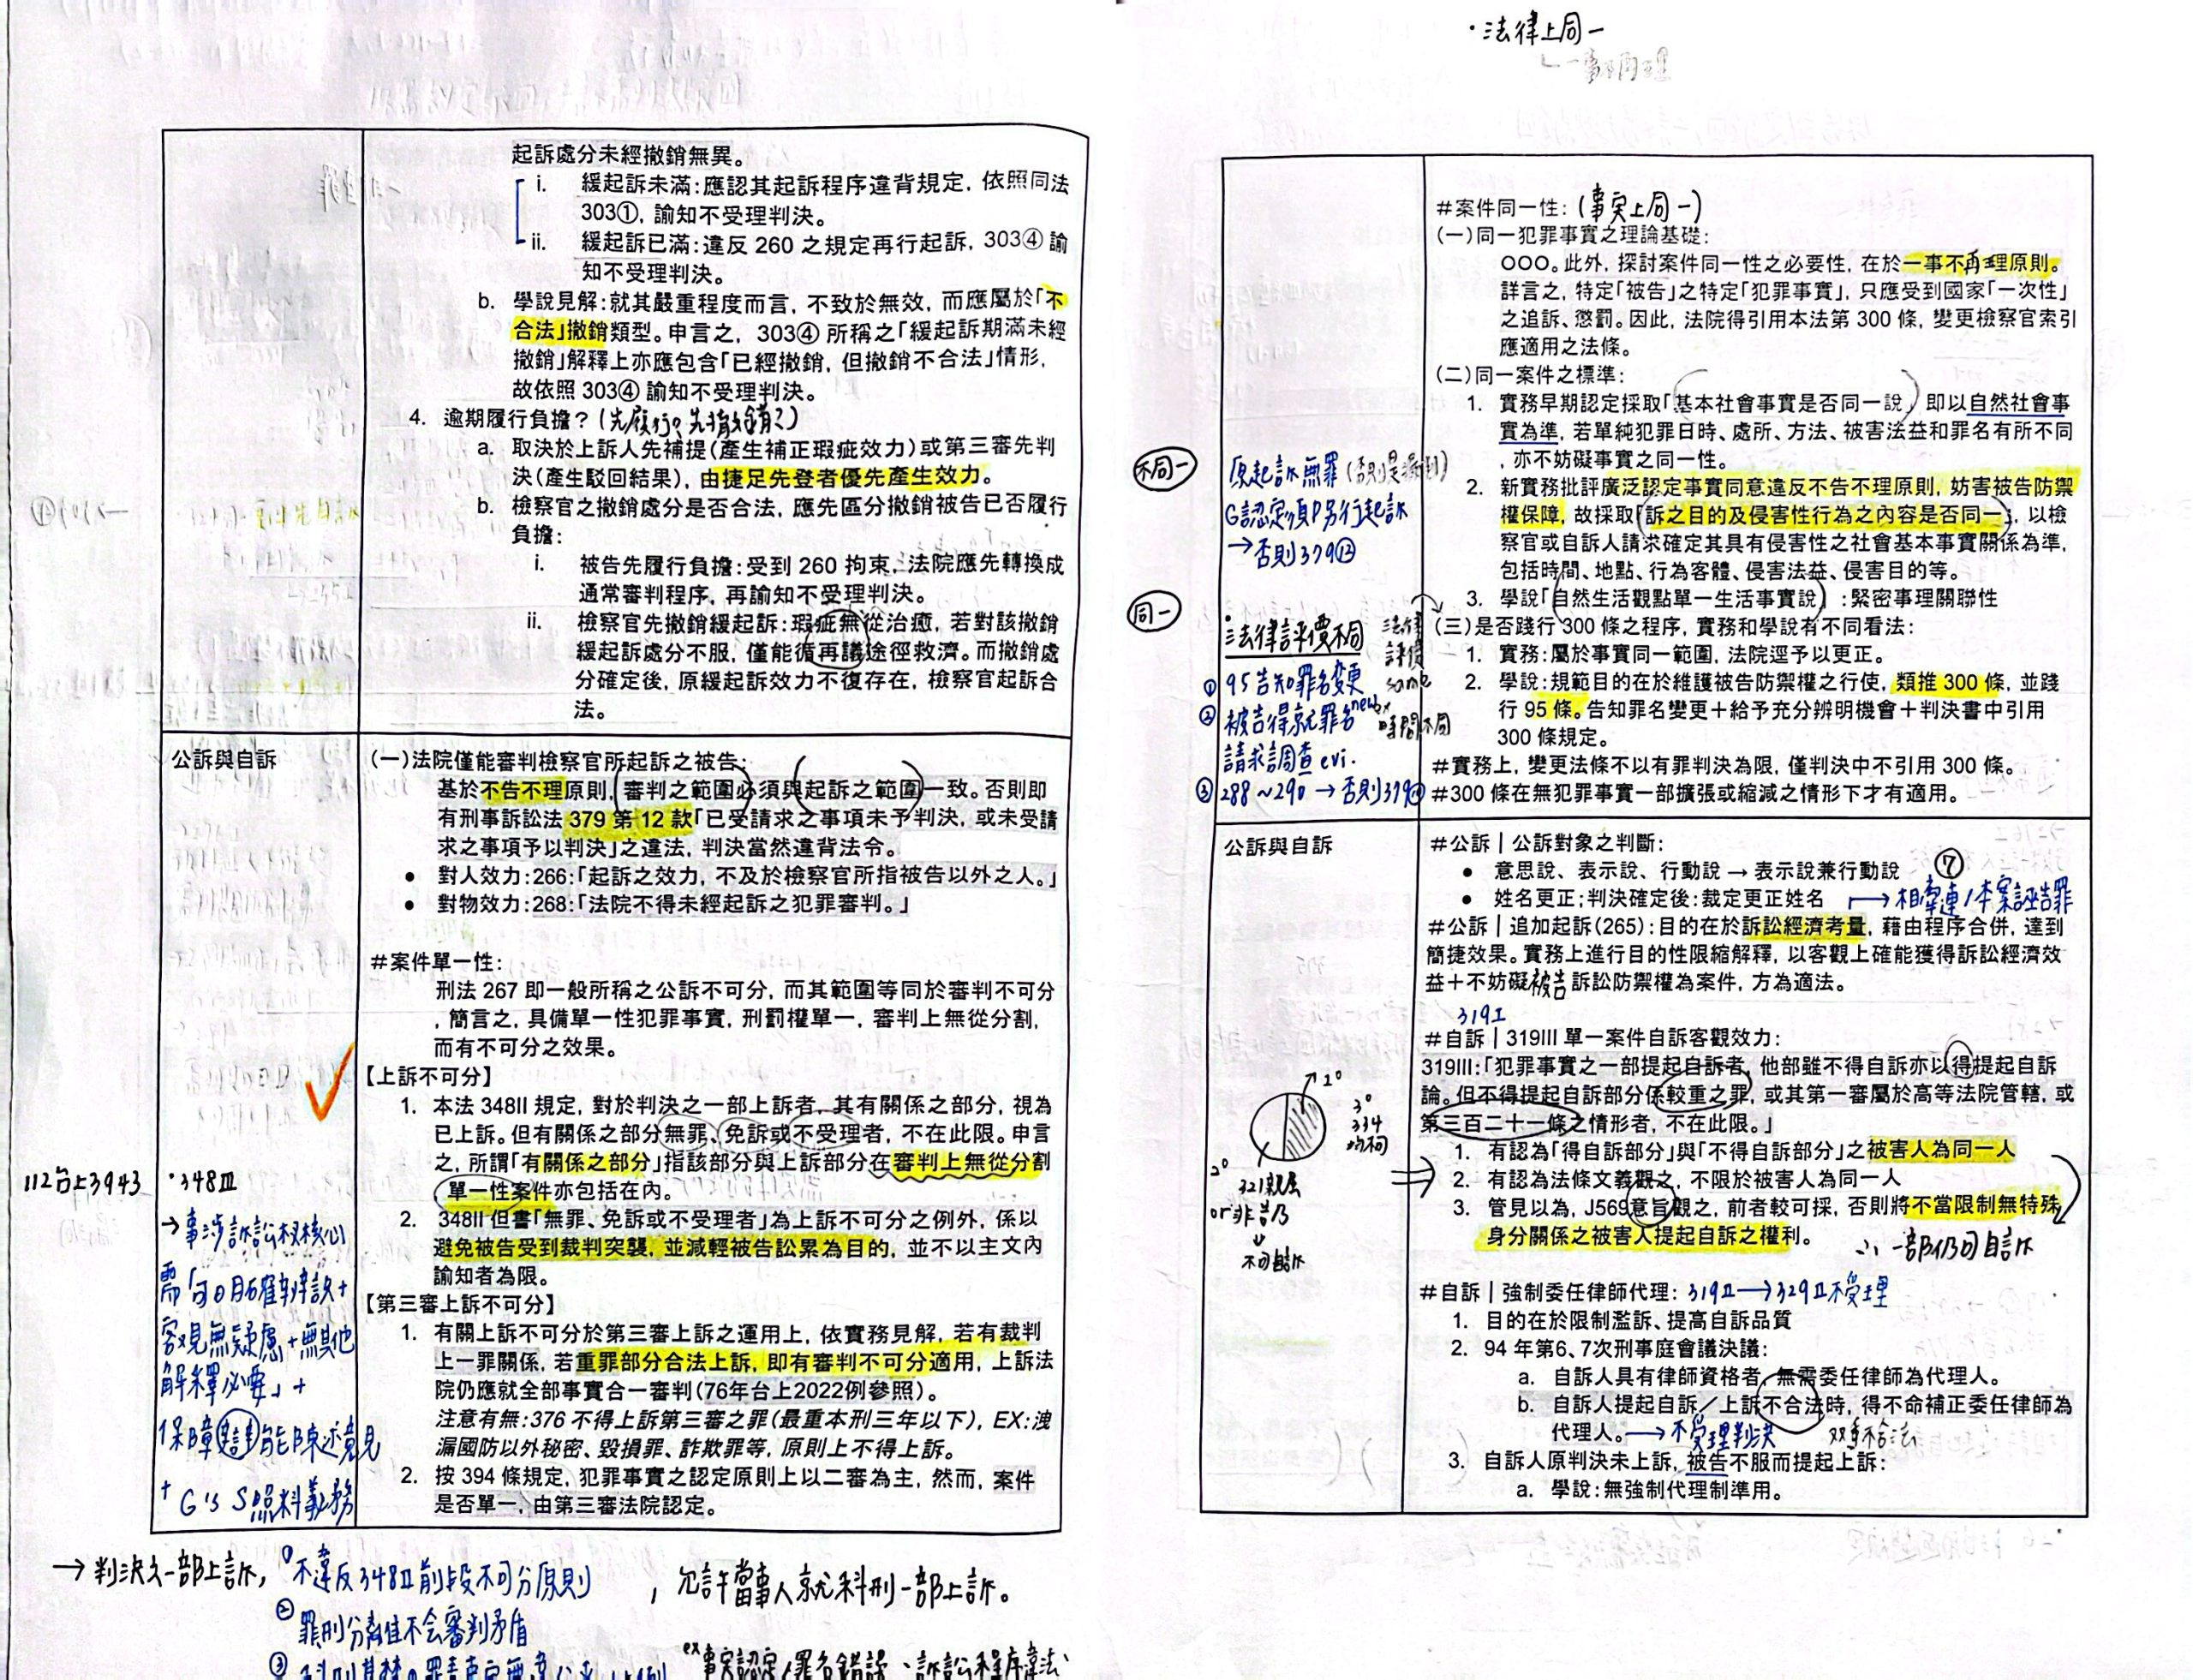 起訴處分未經撤銷無異。
i. 緩起訴未滿：應認其起訴程序違背規定，依照同法
303①，諭知不受理判決。
ii. 緩起訴已滿：違反 260 之規定再行起訴，303④ 諭
知不受理判決。
b. 學說見解：就其嚴重程度而言，不致於無效，而應屬於「不
合法」撤銷類型。申言之，303④ 所稱之「緩起訴期滿未經
撤銷」解釋上亦應包含「已經撤銷，但撤銷不合法」情形，
故依照 303④ 諭知不受理判決。
4. 逾期履行負擔？(先履行？先撤銷？)
a. 取決於上訴人先補提（產生補正瑕疵效力）或第三審先判
決（產生駁回結果），由捷足先登者優先產生效力。
b. 檢察官之撤銷處分是否合法，應先區分撤銷被告已否履行
負擔：
i. 被告先履行負擔：受到 260 拘束，法院應先轉換成
通常審判程序，再諭知不受理判決。
ii. 檢察官先撤銷緩起訴：瑕疵無從治癒，若對該撤銷
緩起訴處分不服，僅能循再議途徑救濟。而撤銷處
分確定後，原緩起訴效力不復存在，檢察官起訴合
法。
公訴與自訴
（一）法院僅能審判檢察官所起訴之被告：
基於不告不理原則，審判之範圍必須與起訴之範圍一致。否則即
有刑事訴訟法 379 第 12 款「已受請求之事項未予判決，或未受請
求之事項予以判決」之違法，判決當然違背法令。
● 對人效力：266：「起訴之效力，不及於檢察官所指被告以外之人。」
● 對物效力：268：「法院不得未經起訴之犯罪審判。」
#案件單一性：
刑法 267 即一般所稱之公訴不可分，而其範圍等同於審判不可分
，簡言之，具備單一性犯罪事實，刑罰權單一，審判上無從分割，
而有不可分之效果。
【上訴不可分】
1. 本法 348II 規定，對於判決之一部上訴者，其有關係之部分，視為
已上訴。但有關係之部分無罪、免訴或不受理者，不在此限。申言
之，所謂「有關係之部分」指該部分與上訴部分在審判上無從分割
單一性案件亦包括在內。
2. 348II 但書「無罪、免訴或不受理者」為上訴不可分之例外，係以
避免被告受到裁判突襲，並減輕被告訟累為目的，並不以主文內
諭知者為限。
【第三審上訴不可分】
1. 有關上訴不可分於第三審上訴之運用上，依實務見解，若有裁判
上一罪關係，若重罪部分合法上訴，即有審判不可分適用，上訴法
院仍應就全部事實合一審判（76年台上2022例參照）。
注意有無：376 不得上訴第三審之罪（最重本刑三年以下），EX：洩
漏國防以外秘密、毀損罪、詐欺罪等，原則上不得上訴。
2. 按 394 條規定，犯罪事實之認定原則上以二審為主，然而，案件
是否單一，由第三審法院認定。
112台上3943
·348Ⅲ
→事涉訴訟權核心
需「句明確辨訣+
客見無疑慮+無其他
解釋必要」+
保障達能陳述意見
+ G's S照料義務
→判決之一部上訴，①不違反348Ⅱ前段不可分原則
，允許當事人就科刑一部上訴。
②罪刑分離但不会審判矛盾
ex事實認定/罪名錯誤、訴訟程序違法、
·法律上同一
一事不再理
#案件同一性：(事实上同一)
（一）同一犯罪事實之理論基礎：
○○○。此外，探討案件同一性之必要性，在於一事不再理原則。
詳言之，特定「被告」之特定「犯罪事實」，只應受到國家「一次性」
之追訴、懲罰。因此，法院得引用本法第 300 條，變更檢察官索引
應適用之法條。
（二）同一案件之標準：
1. 實務早期認定採取「基本社會事實是否同一說」，即以自然社會事
實為準，若單純犯罪日時、處所、方法、被害法益和罪名有所不同
，亦不妨礙事實之同一性。
2. 新實務批評廣泛認定事實同意違反不告不理原則，妨害被告防禦
權保障，故採取「訴之目的及侵害性行為之內容是否同一」，以檢
察官或自訴人請求確定其具有侵害性之社會基本事實關係為準，
包括時間、地點、行為客體、侵害法益、侵害目的等。
3. 學說「自然生活觀點單一生活事實說」：緊密事理關聯性
（三）是否踐行 300 條之程序，實務和學說有不同看法：
1. 實務：屬於事實同一範圍，法院逕予以更正。
2. 學說：規範目的在於維護被告防禦權之行使，類推 300 條，並踐
行 95 條。告知罪名變更＋給予充分辨明機會＋判決書中引用
300 條規定。
#實務上，變更法條不以有罪判決為限，僅判決中不引用 300 條。
#300 條在無犯罪事實一部擴張或縮減之情形下才有適用。
不同一
原起訴無罪(否則是漏判)
G認定須P另行起訴
→否則379⑫
同一
法律評價不同
法律評價same
ex時間不同
①95告知罪名變更
②被告得就罪名new
請求調查evi.
③288~290→否則379⑭
公訴與自訴
#公訴｜公訴對象之判斷：
● 意思說、表示說、行動說 → 表示說兼行動說
⑦
● 姓名更正；判決確定後：裁定更正姓名 →相牽連/本案誣告罪
#公訴｜追加起訴（265）：目的在於訴訟經濟考量，藉由程序合併，達到
簡捷效果。實務上進行目的性限縮解釋，以客觀上確能獲得訴訟經濟效
益＋不妨礙被告訴訟防禦權為案件，方為適法。
319I
#自訴｜319III 單一案件自訴客觀效力：
319III：「犯罪事實之一部提起自訴者，他部雖不得自訴亦以得提起自訴
論。但不得提起自訴部分係較重之罪，或其第一審屬於高等法院管轄，或
第三百二十一條之情形者，不在此限。」
1. 有認為「得自訴部分」與「不得自訴部分」之被害人為同一人
2. 有認為法條文義觀之，不限於被害人為同一人
3. 管見以為，J569意旨觀之，前者較可採，否則將不當限制無特殊
身分關係之被害人提起自訴之權利。 ∴一部仍可自訴
1°
3°
334
均不可
2°
321親屬
or非告乃
↓
不可自訴
#自訴｜強制委任律師代理：319Ⅱ→329Ⅱ不受理
1. 目的在於限制濫訴、提高自訴品質
2. 94 年第6、7次刑事庭會議決議：
a. 自訴人具有律師資格者，無需委任律師為代理人。
b. 自訴人提起自訴／上訴不合法時，得不命補正委任律師為
代理人。→不受理判決 双重不合法
3. 自訴人原判決未上訴，被告不服而提起上訴：
a. 學說：無強制代理制準用。